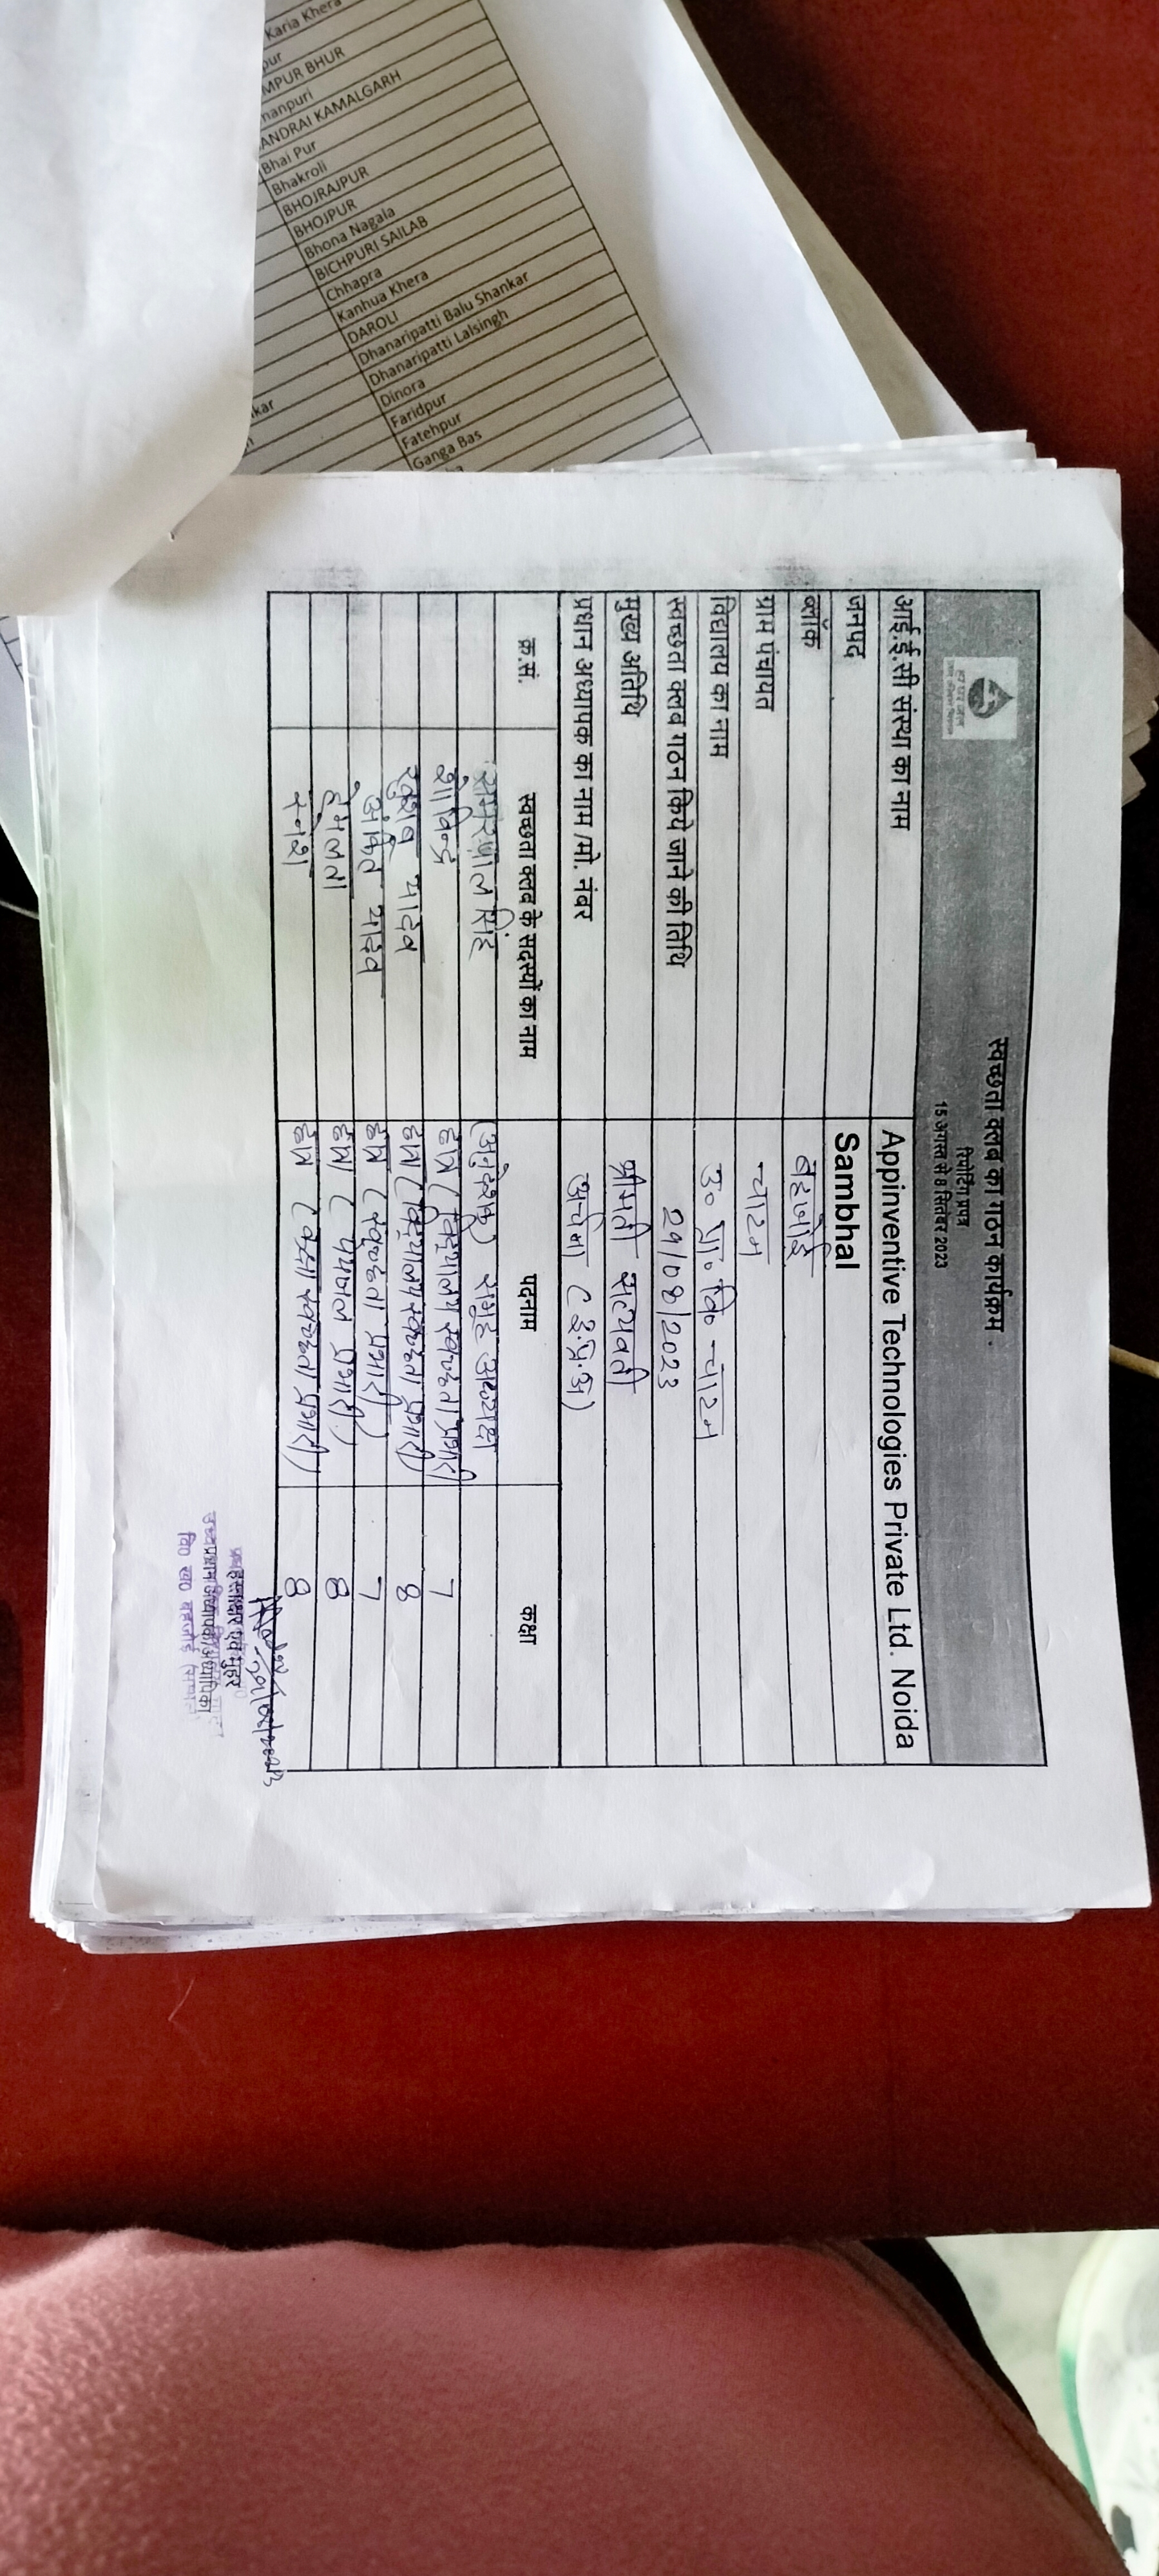 Karia Khera
pur
MPUR BHUR
nanpuri
ANDRAI KAMALGARH
Bhai Pur
Bhakroli
BHOJRAJPUR
BHOJPUR
Bhona Nagala
BICHPURI SAILAB
Chhapra
Kanhua Khera
DAROLI
Dhanaripatti Balu Shankar
Dhanaripatti Lalsingh
Dinora
Faridpur
Fatehpur
Ganga Bas
kar
स्वच्छता क्लब का गठन कार्यक्रम
रिपोर्टिंग प्रपत्र
15 अगस्त से 8 सितंबर 2023
आई.ई.सी संस्था का नाम Appinventive Technologies Private Ltd. Noida
जनपद Sambhal
ब्लॉक बहजोई
ग्राम पंचायत चाटन
विद्यालय का नाम उ० प्रा० वि० चाटन
स्वच्छता क्लब गठन किये जाने की तिथि 29/08/2023
मुख्य अतिथि श्रीमती सत्यवती
प्रधान अध्यापक का नाम /मो. नंबर अर्चना (इ.प्र.अ)
क्र.सं. स्वच्छता क्लब के सदस्यों का नाम पदनाम कक्षा
रामरपाल सिंह (अनुदेशक) समूह अध्यक्ष
शोविन्द्र छात्र (विद्यालय स्वच्छता प्रभारी 7
खुशबू यादव छात्रा (विद्यालय स्वच्छता प्रभारी) 8
अंकित यादव छात्र (स्वच्छता प्रभारी) 7
हेमलता छात्रा (पेयजल प्रभारी) 8
छात्र (कक्षा स्वच्छता प्रभारी) 8
हस्ताक्षर एवं मुहर
प्रधान अध्यापक/अध्यापिका
वि० ख० बहजोई (सम्भल)